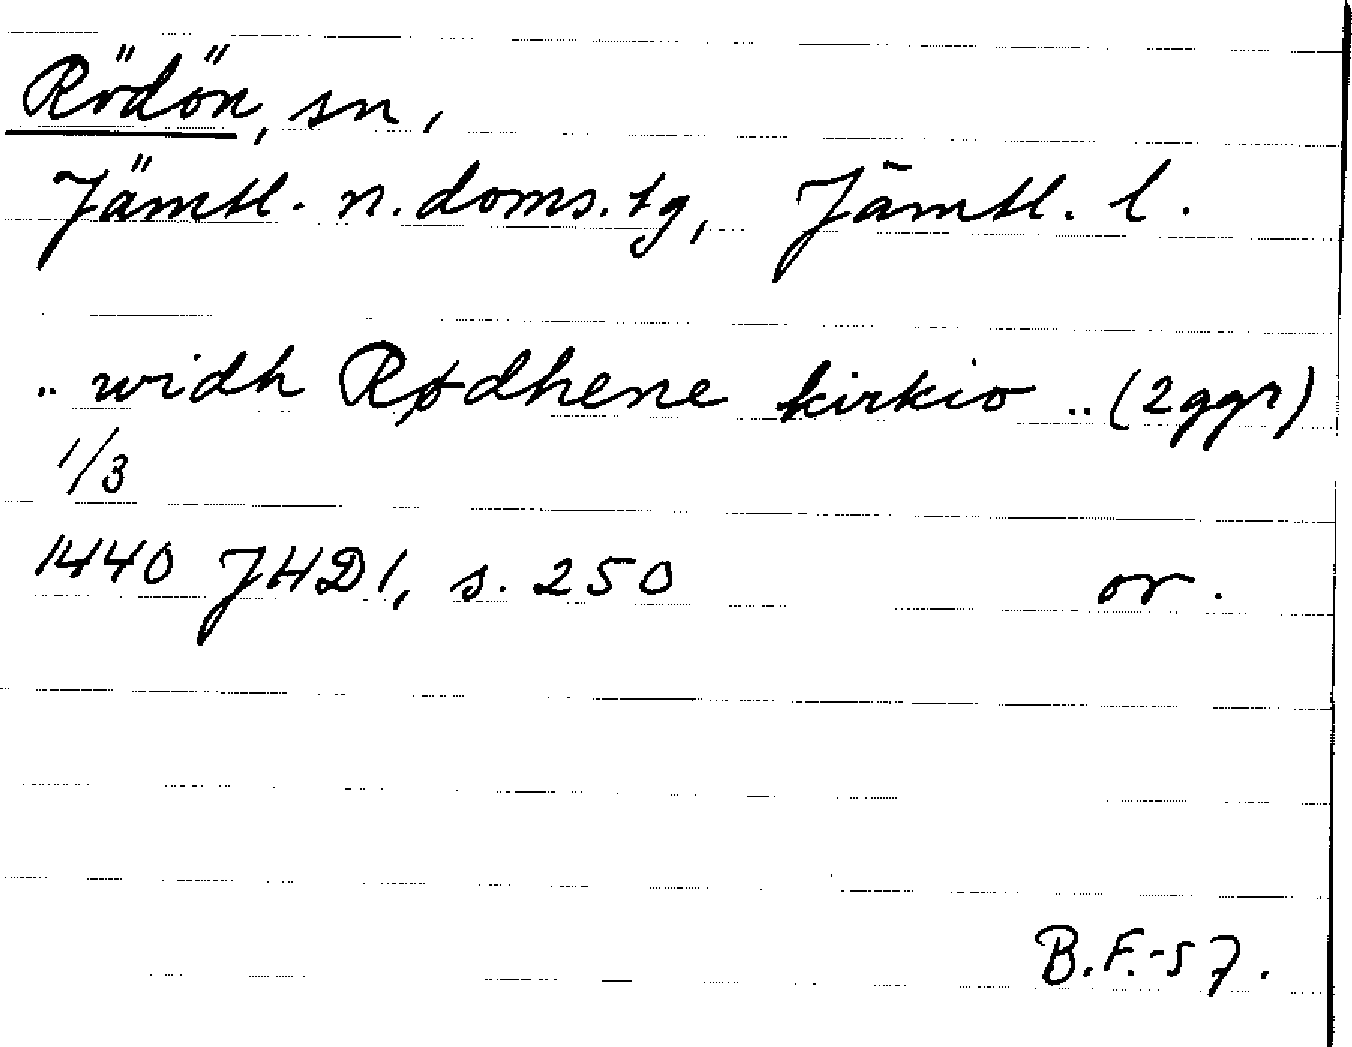 Rödön, sn,
Jämtl. n. doms. tg, Jämtl. l.
.. widh Rødhene kirkio .. (2ggr)
1/3
1440 JHD1, s. 250 or.
B.F.-57.